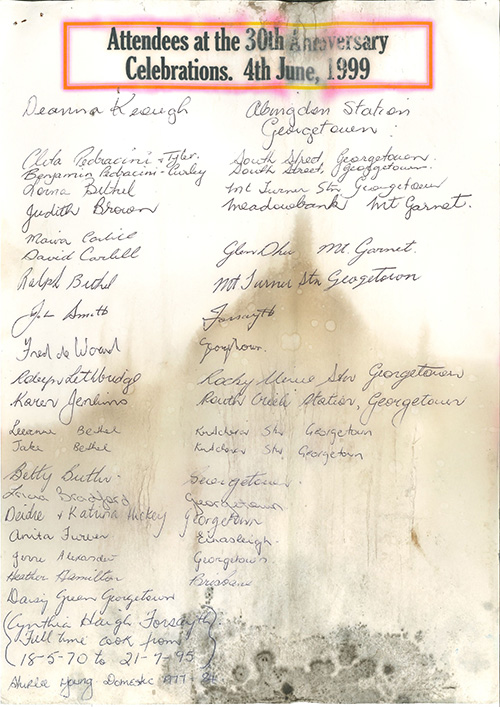 Attendees at the 30th Anniversary
Celebrations. 4th June, 1999
Deanna Keough Abingdon Station
Georgetown
Cleta Pedracini & Tyler. South Street, Georgetown.
Benjamin Pedracini-Curley South Street, Georgetown.
Lorna Bethel Mt Turner Stn Georgetown
Judith Brown Meadowbank Mt Garnet.
David Glen Dhu Mt. Garnet.
Ralph Bethel Mt Turner Stn Georgetown
Smith Forsayth
Fred de Georgetown.
Robyn Lethbridge Rocky Stn Georgetown
Karen Jenkins Routh Creek Station, Georgetown
Leeanne Bethel Stn Georgetown
Jake Bethel Stn Georgetown
Betty Butler. Georgetown.
Bradford Georgetown
Deidre & Katrina Hickey Georgetown
Anita Turner Einasleigh.
Alexander Georgetown
Heather Hamilton Brisbane
Daisy Green Georgetown
(Cynthia Haigh Forsayth)
Full time cook from
(18-5-70 to 21-7-95)
Young Domestic 1977-